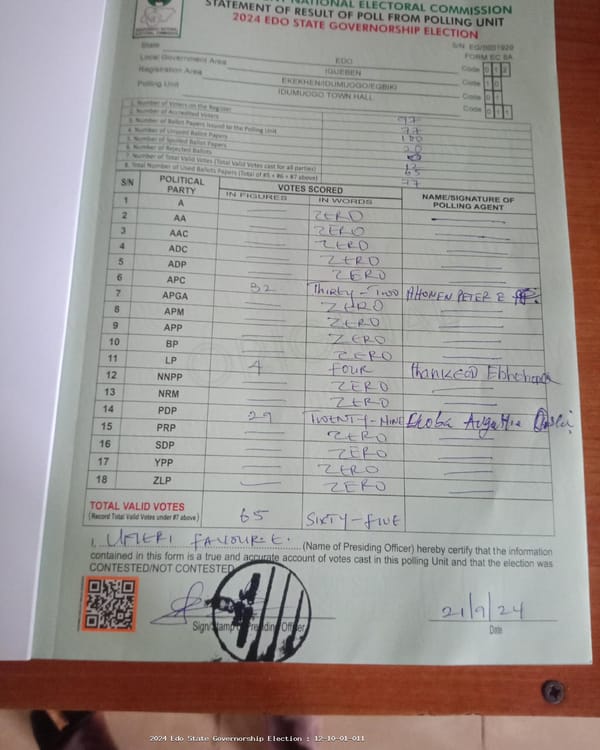 NATIONAL ELECTORAL COMMISSION
STATEMENT OF RESULT OF POLL FROM POLLING UNIT
2024 EDO STATE GOVERNORSHIP ELECTION
FORM EC 8A
State EDO Code 012
Local Government Area IGUEBEN Code 10
Registration Area EKEKHEN/IDUMUOGO/EGBIKI Code 01
Polling Unit IDUMUOGO TOWN HALL Code 011
1. Number of Voters on the Register
2. Number of Accredited Voters 77
3. Number of Ballot Papers Issued to the Polling Unit 100
4. Number of Unused Ballot Papers
5. Number of Spoiled Ballot Papers
6. Number of Rejected Ballots 12
7. Number of Total Valid Votes (Total Valid Votes cast for all parties) 65
8. Total Number of Used Ballots Papers (Total of #5 + #6 + #7 above) 77
S/N POLITICAL PARTY VOTES SCORED NAME/SIGNATURE OF POLLING AGENT
IN FIGURES IN WORDS
1 A ZERO
2 AA ZERO
3 AAC ZERO
4 ADC ZERO
5 ADP ZERO
6 APC 32 THIRTY-TWO AHOMEN PETER E
7 APGA ZERO
8 APM ZERO
9 APP ZERO
10 BP ZERO
11 LP 4 FOUR
12 NNPP ZERO
13 NRM ZERO
14 PDP 29 TWENTY-NINE
15 PRP ZERO
16 SDP ZERO
17 YPP ZERO
18 ZLP ZERO
TOTAL VALID VOTES 65 SIXTY-FIVE
(Record Total Valid Votes under #7 above)
I, FAVOUR E. (Name of Presiding Officer) hereby certify that the information
contained in this form is a true and accurate account of votes cast in this polling Unit and that the election was
CONTESTED/NOT CONTESTED
21/9/24
Sign/Stamp Presiding Officer Date
2024 Edo State Governorship Election : 12-10-01-011